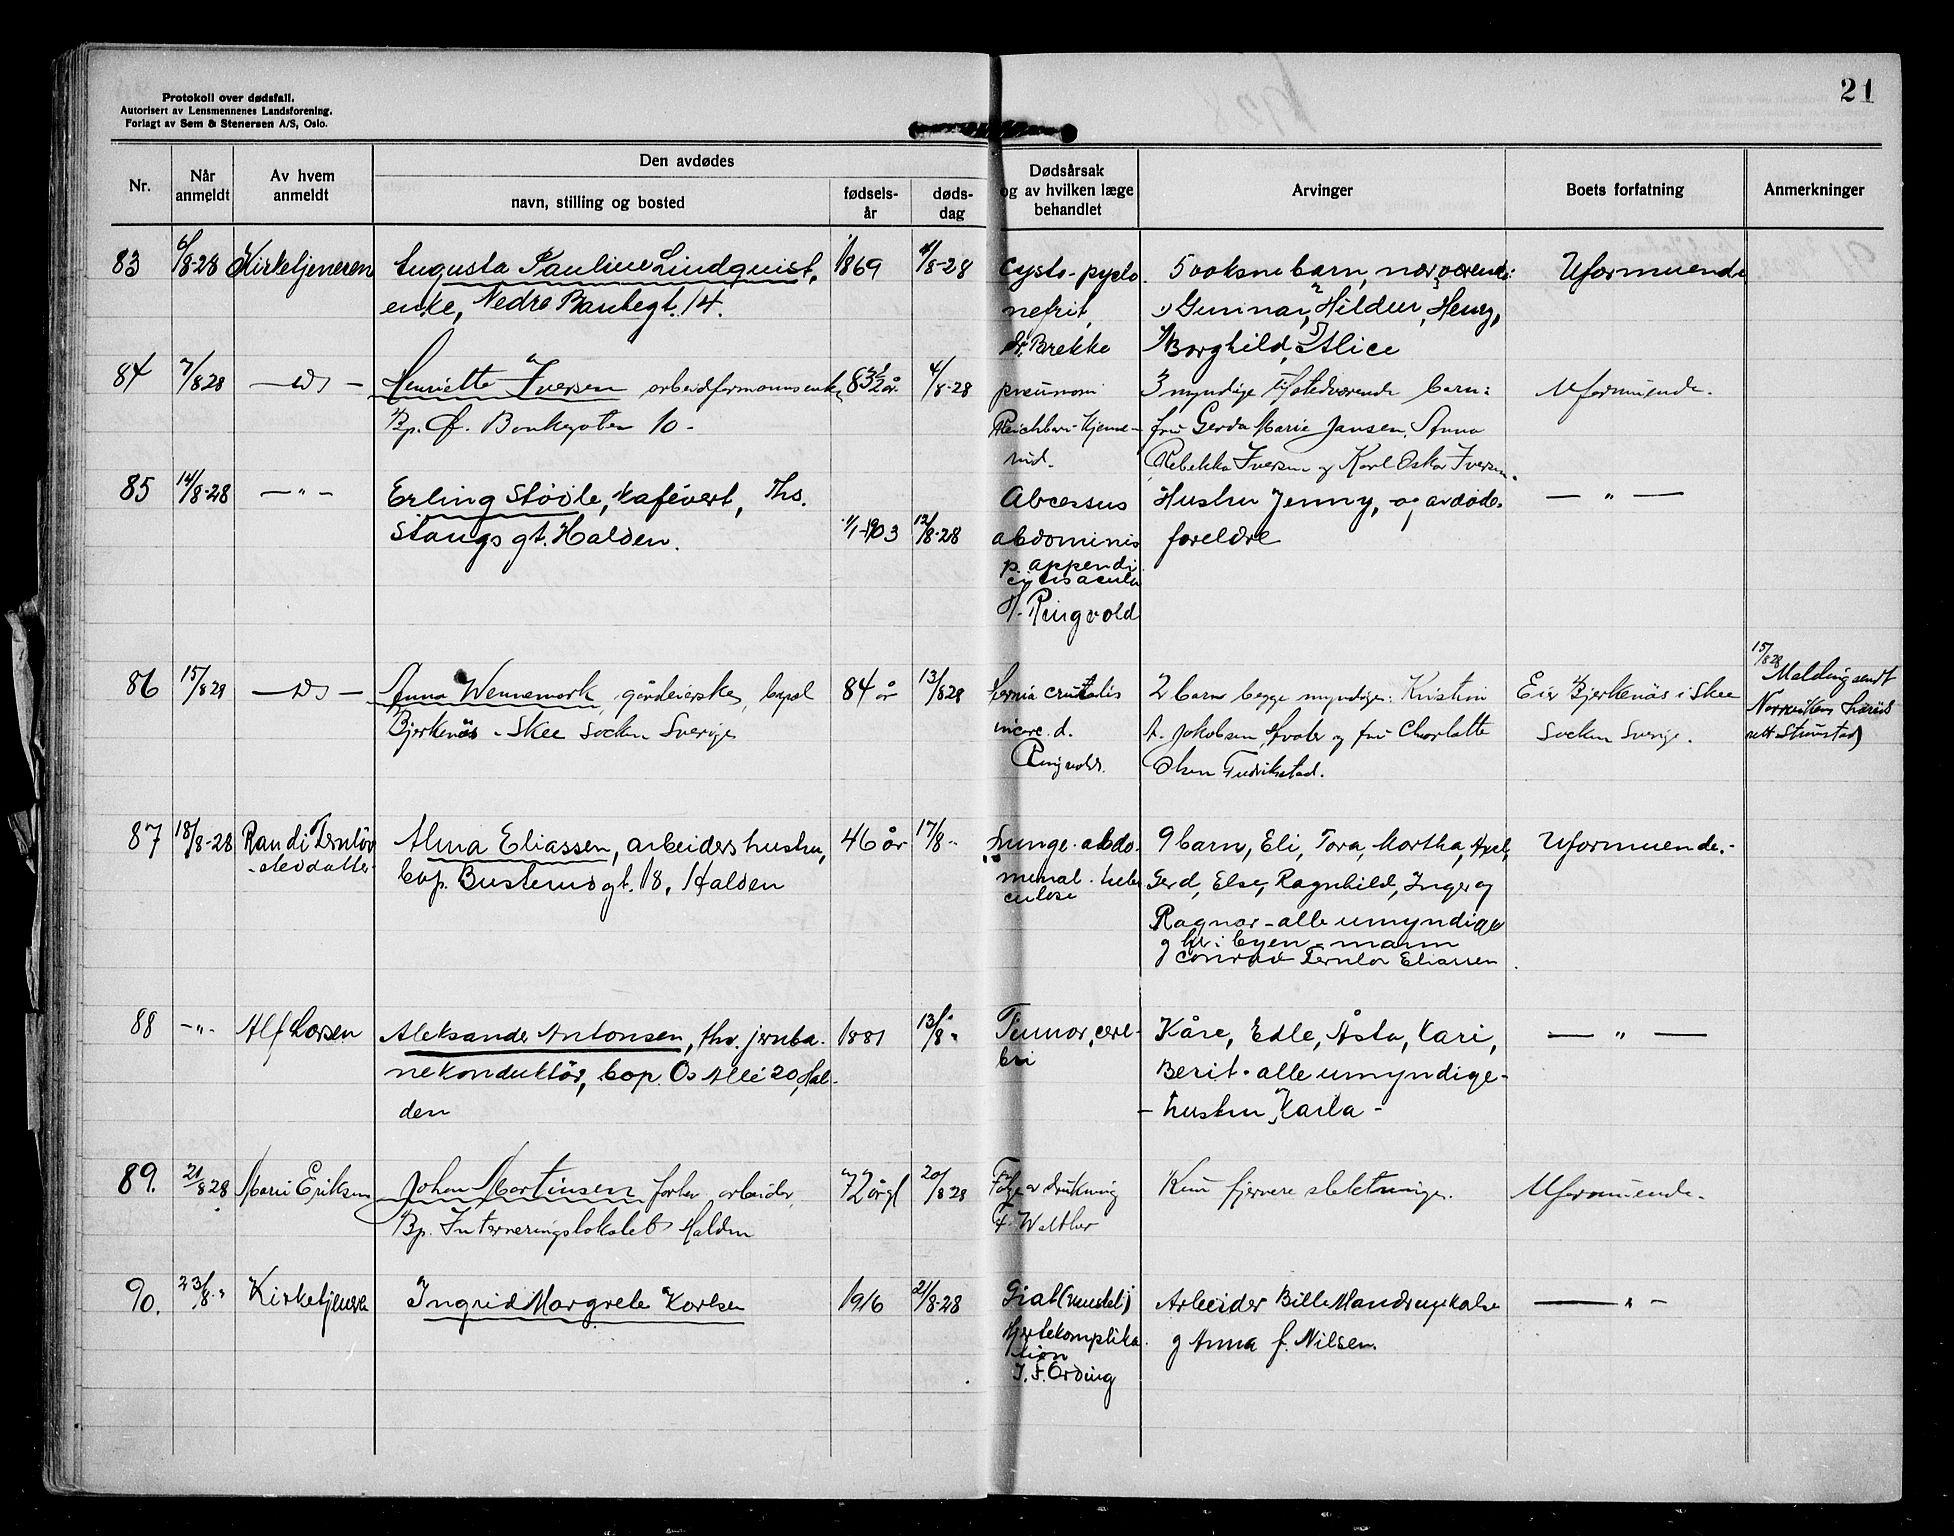 Protokoll over dødsfall.
Autorisert av Lensmennenes Landsforening.
Forlagt av Sem & Stenersen A/S, Oslo.
21
Nr.
Når anmeldt
Av hvem anmeldt
Den avdødes
navn, stilling og bosted
fødsels-år
døds-dag
Dødsårsak og av hvilken læge behandlet
Arvinger
Boets forfatning
Anmerkninger
83 6/8-28 Kirketjeneren Augusta Pauline Lindquist, 1869 4/8-28 Cysto-pyelo 5 voksne barn, nærværende: Uformuende
enke, Nedre Bankegt. 14. nefrit, 1) Gunnar, 2 Hildur, 3 Henry,
dr. Brekke 4) Borghild, 5) Alice
84 7/8 28 — Ds — Henriette Iversen arbeidformanns enke, 83 1/2 år 4/8-28 pneumoni 3 myndige tilstedværende barn: Uformuende.
Bp. Bankegaten 10 - fru Gerda Marie Jansen, Anna
Rebekka Iversen og Karl Oskar Iversen.
85 14/8-28 — " — Erling Støvle, kafévert, Ths. Abcessus Hustru Jenny, og avdødes — " —
Stangs gt. Halden. 1/1-1903 12/8-28 abdominis foreldre
p. appendi
citis acuta
Ringvold
86 15/8 28 — Ds — Anna Wennemork, gårdeierske, bopæl 84 år 13/8 28 hernia cruralis 2 barn begge myndige: Kristin Eier Bjerkenäs i Skee 15/8 28 Melding sendt
Bjerkenäs - Skee Socken Sverige incarc. d. A. Jakobsen, og fru Charlotte Socken Sverige. Norrvikens härads
Ringvold. Olsen Fredrikstad. rett Strømstad
87 18/8-28 Randi Ternløv Alma Eliassen, arbeiders hustru, 46 år 17/8 " Lunge-abdo- 9 barn, Eli, Tora, Martha, Axel, Uformuende.-
- steddatter - bop. Busterudgt. 18, Halden minal-tuber Gerd, Else, Ragnhild, Inger og
culose Ragnar - alle umyndige
og her i byen - mann
Conrad Ternløv Eliassen.
88 - " - Alf Larsen Aleksander Antonsen, fhv. jernba- 1881 13/8 " Tumor, cere- Kåre, Edle, Åsta, Kari, — " —
nekonduktör, bop. Os Allé 20, Hal- bri Berit - alle umyndige -
den - hustru, Karla -
89. 21/8 28 Marie Eriksen Johan Martinsen forhv. arbeider, 72 år gl 20/8 28 Følge av drukning Kun fjernere slektninger. Uformuende.
Bp. Interneringslokalet Halden Walther
90. 23/8 " Kirketjeneren Ingrid Margrete Karlsen 1916 21/8-28 Arbeider Karlsen — " —
Hjertekomplika og Anna f. Nilsen.
tion
J. F. Ording